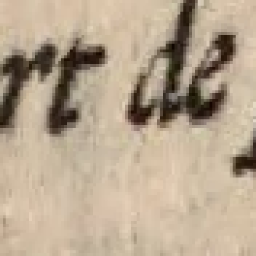 rt de